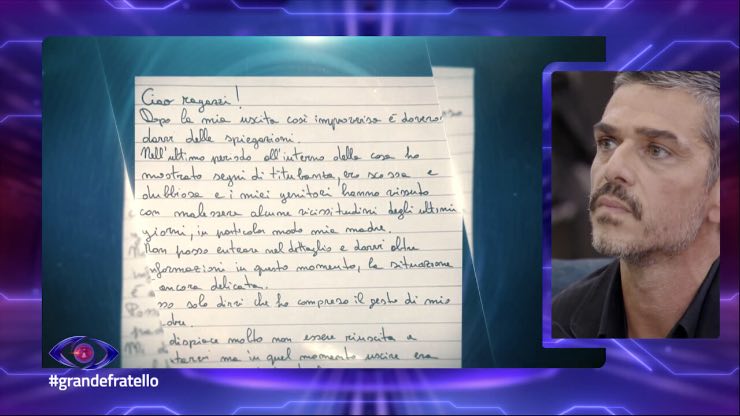 Ciao ragazzi!
Dopo la mia uscita così improvvisa è dovero
darvi delle spiegazioni.
Nell'ultimo periodo all'interno della casa ho
mostrato segni di titubanza, ero scossa e
dubbiosa e i miei genitori hanno vissuto
con malessere alcune vicissitudini degli ultimi
giorni, in particolar modo mia madre.
Non posso entrare nel dettaglio e darvi altre
nformazioni in questo momento, la situazione
ancora delicata.
sso solo dirvi che ho compreso il gesto di mio
dre.
dispiace molto non essere riuscita a
tarvi ma in quel momento uscire era
#grandefratello